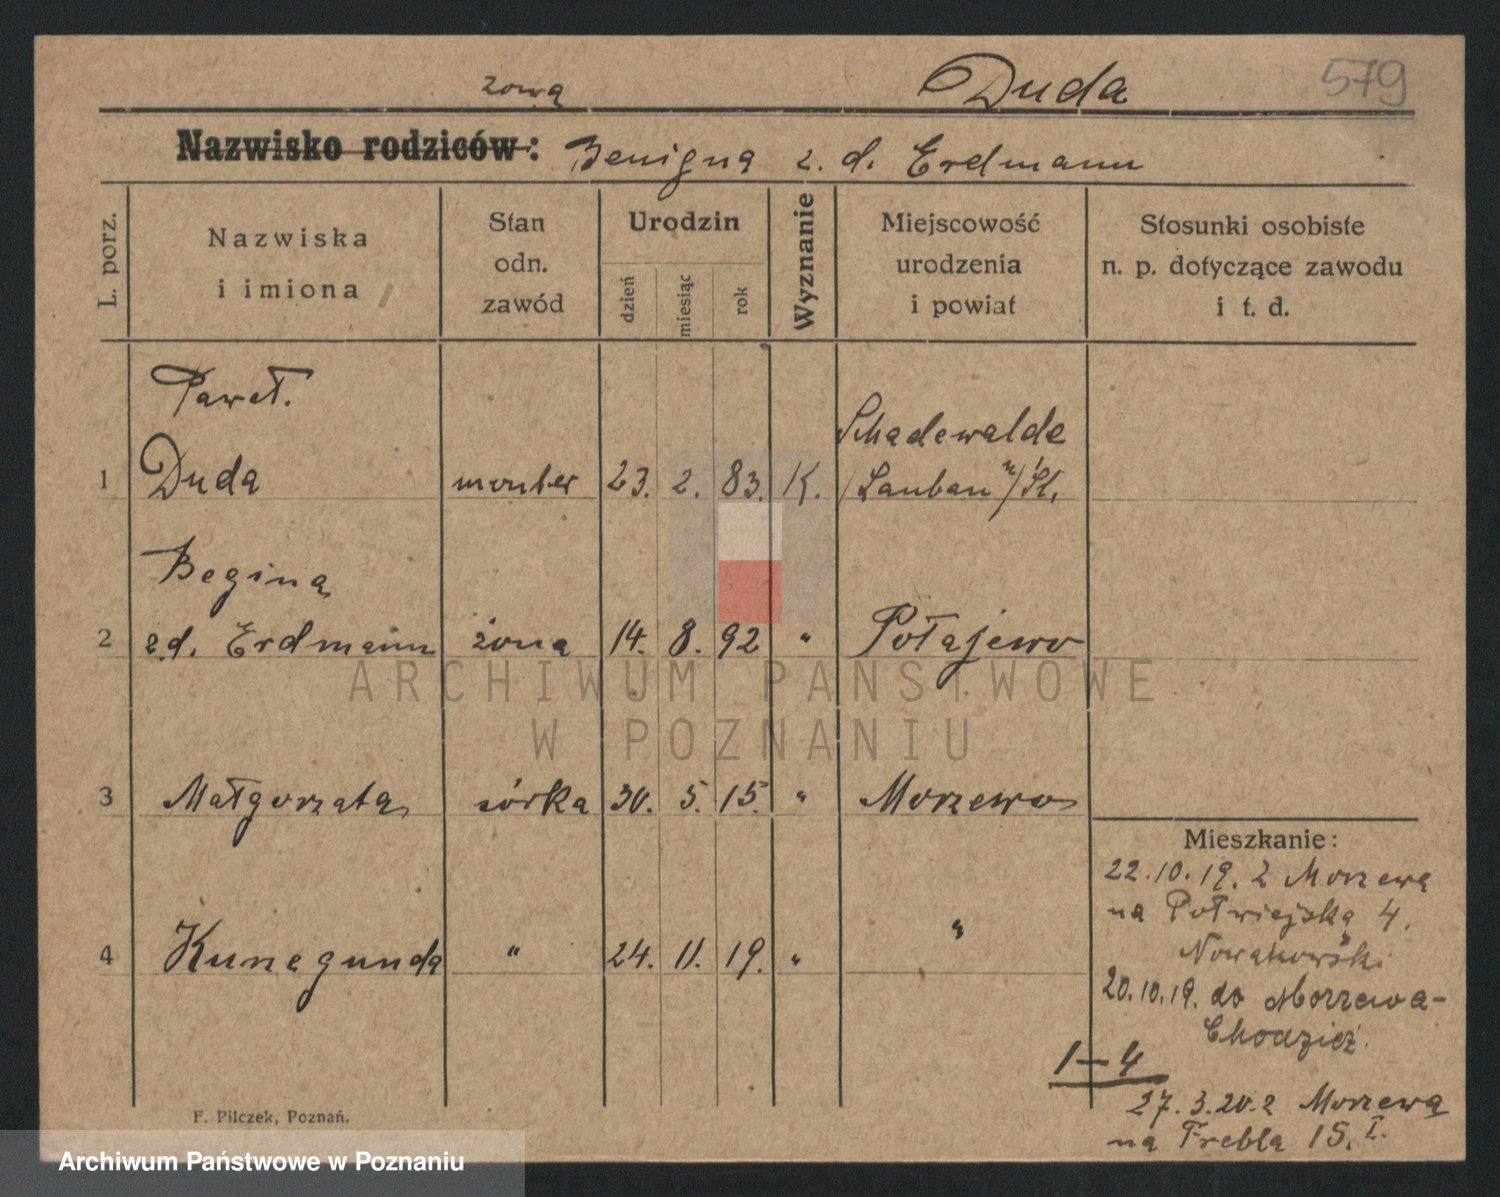 żona Duda 579
Nazwisko rodziców: Benigna z. d. Erdmann
L. porz.
Nazwiska
i imiona
Stan
odn.
zawód
Urodzin
dzień
miesiąc
rok
Wyznanie
Miejscowość
urodzenia
i powiat
Stosunki osobiste
n. p. dotyczące zawodu
i t. d.
Paweł.
1 Duda monter 23. 2. 83. K. Schadewalde
/Lauban n/Śl.
2 z.d. Erdmann żona 14. 8. 92 " Połajewo
3 Małgorzata córka 30. 5. 15. " Morzewo
4 Kunegunda " 24. 11. 19. " "
Mieszkanie:
22.10.19. z Morzewa
na Półwiejską 4.
Nowakowski
20.10.19. do Morzewa-
Chodzież.
1-4
27.3.20. z Morzewa
na Grebla 15. I.
F. Pilczek, Poznań.
ARCHIWUM PAŃSTWOWE
W POZNANIU
Archiwum Państwowe w Poznaniu